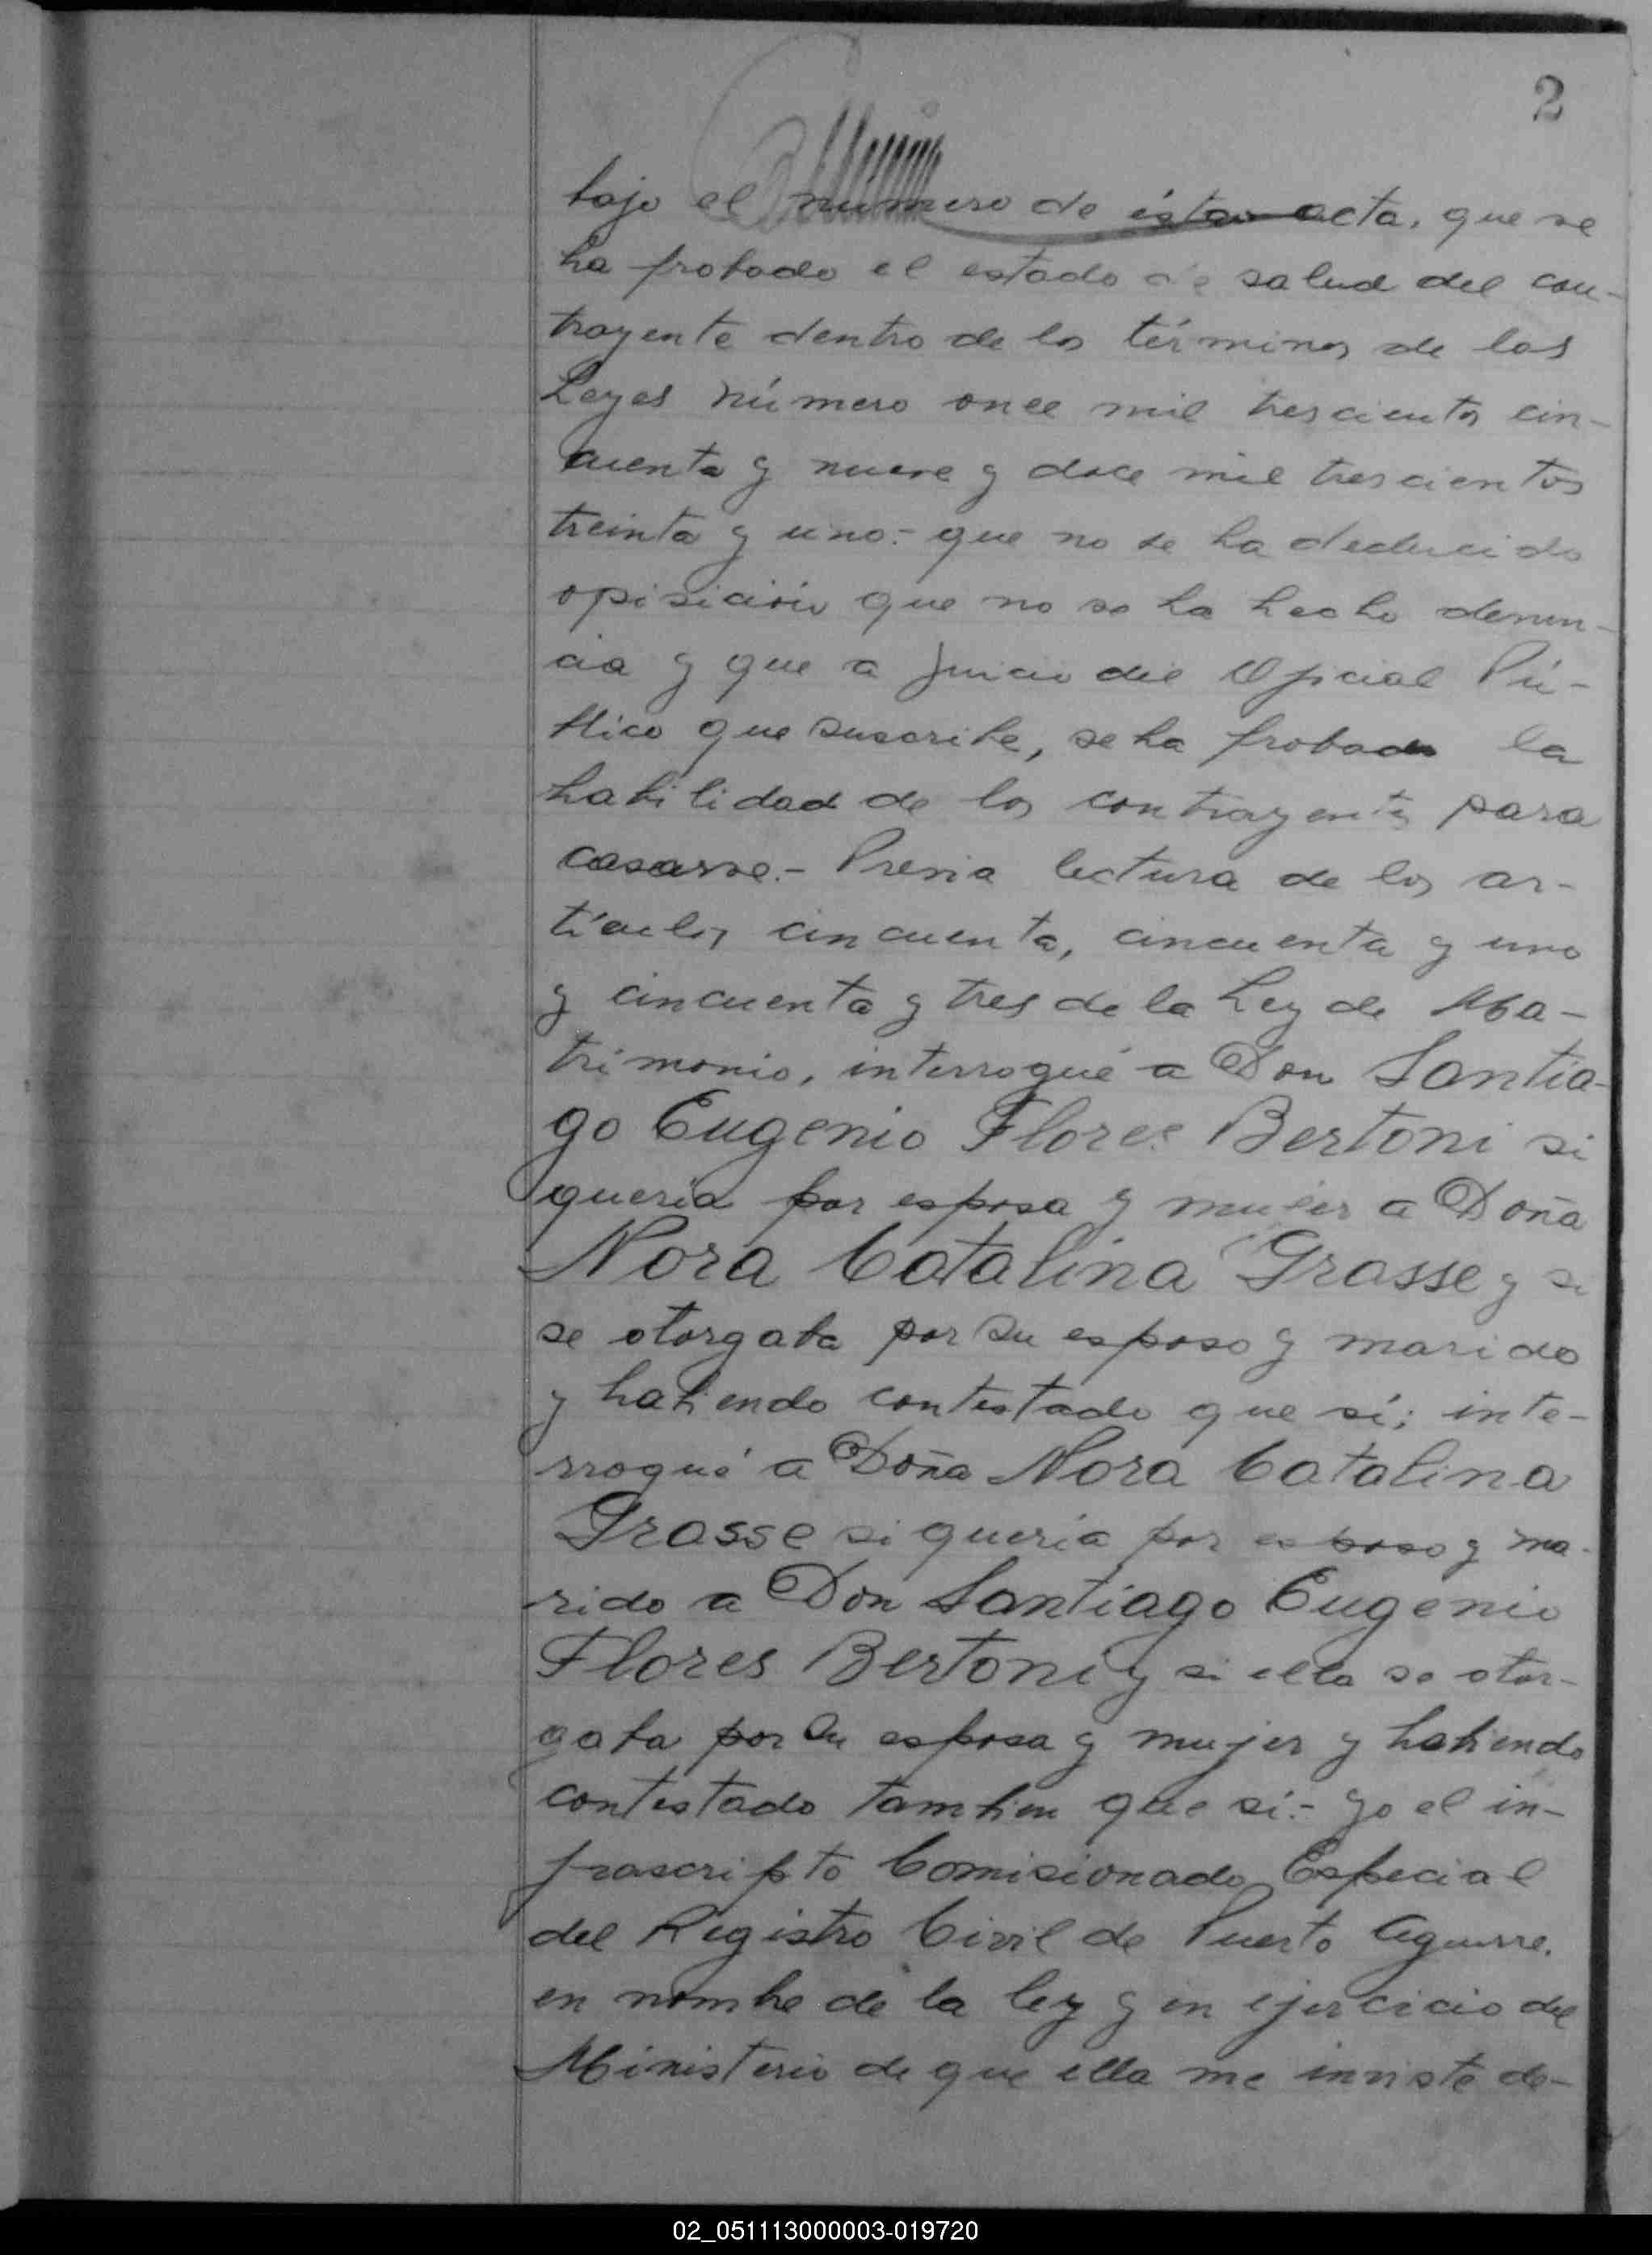 2
bajo el número de ésta acta, que se
ha probado el estado de salud del con-
trayente dentro de los términos de las
Leyes número once mil trescientos cin-
cuenta y nueve y doce mil trescientos
treinta y uno.- que no se ha deducido
opisición que no se ha hecho denun-
cia y que a juicio del Oficial Pú-
blico que suscribe, se ha probado la
habilidad de los contrayentes para
casarse.- Previa lectura de los ar-
tículos cincuenta, cincuenta y uno
y cincuenta y tres de la Ley de Ma-
trimonio, interrogué a Don Santia-
go Eugenio Flores Bertoni si
quería por esposa y mujer a Doña
Nora Catalina Grasse y si
se otorgaba por su esposo y marido
y habiendo contestado que sí; inte-
rrogué a Doña Nora Catalina
Grasse si quería por esposo y ma-
rido a Don Santiago Eugenio
Flores Bertoni y si ella se otor-
gaba por su esposa y mujer y habiendo
contestado tambien que sí.- yo el in-
frascripto Comisionado Especial
del Registro Civil de Puerto Aguirre.
en nombre de la ley y en ejercicio del
Ministerio de que ella me inviste de-
02_051113000003-019720